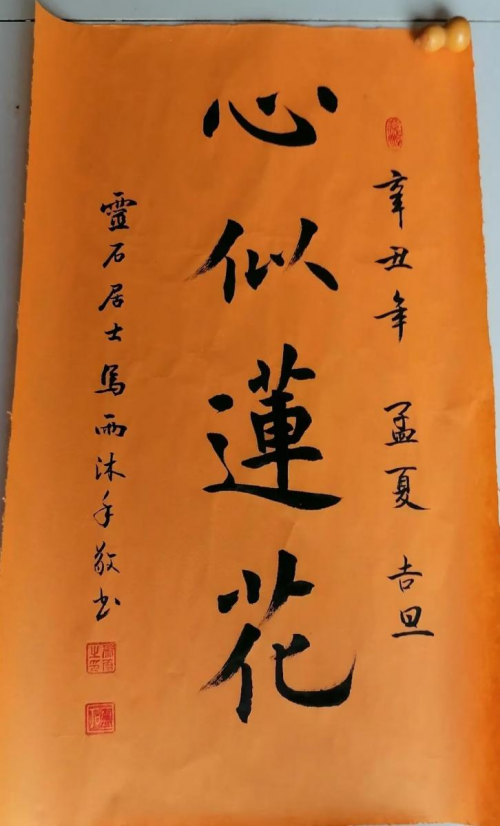 辛丑年 孟夏 吉旦
心似蓮花
靈石居士馮雨沐手敬书